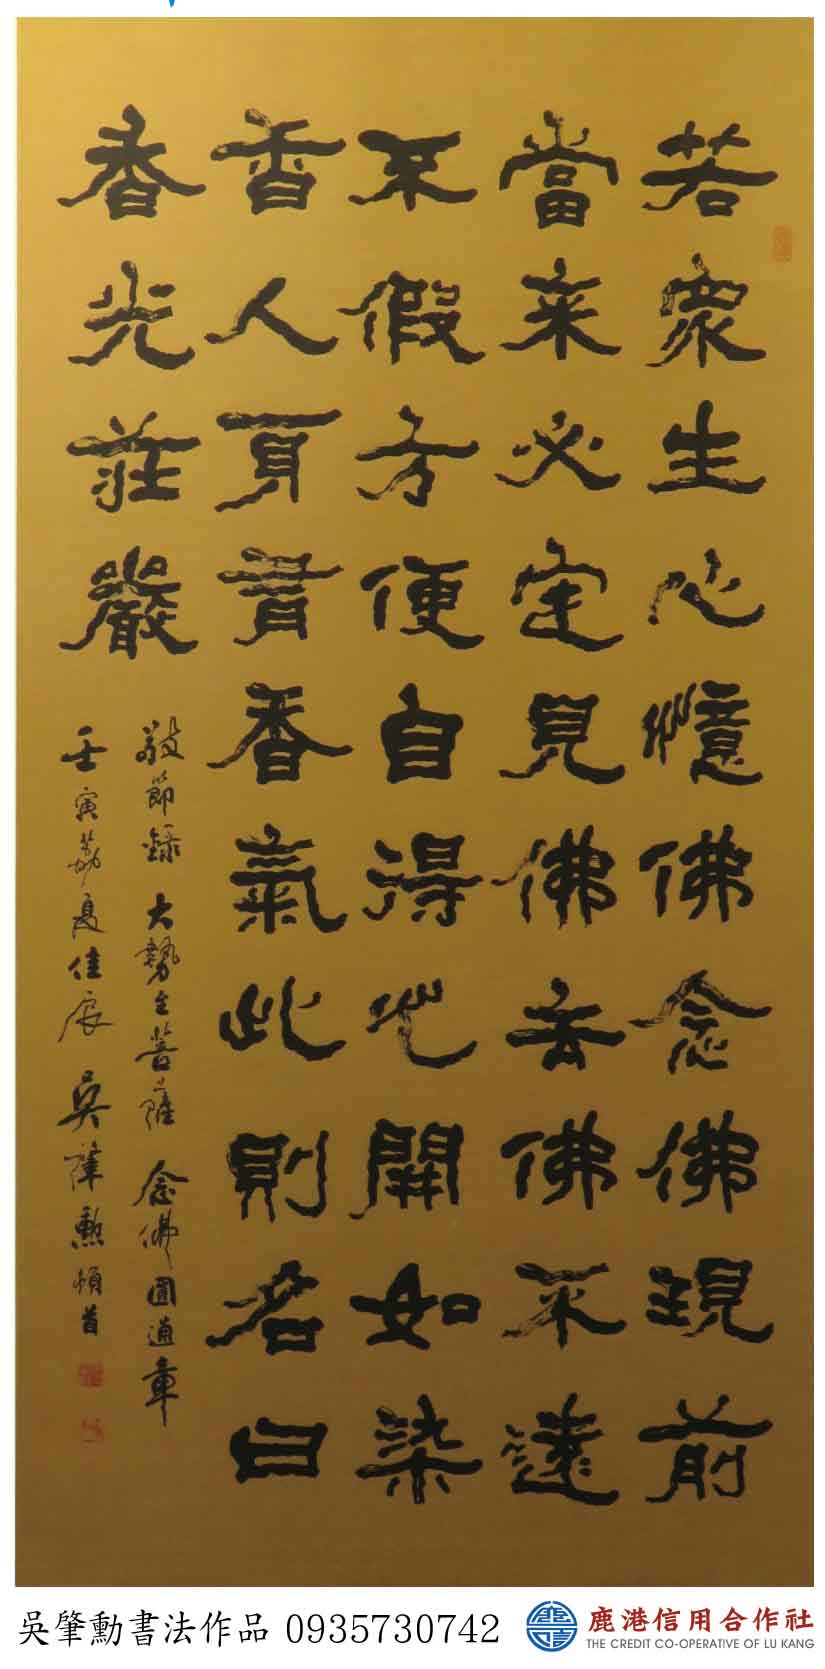 若眾生心憶佛念佛現前
當來必定見佛去佛不遠
不假方便自得心開如染
香人身有香氣此則名曰
香光莊嚴
敬節錄大勢至菩薩念佛圓通章
壬寅荔夏佳辰吳肇勳頓首
吳肇勳書法作品 0935730742
鹿港信用合作社
THE CREDIT CO-OPERATIVE OF LU KANG